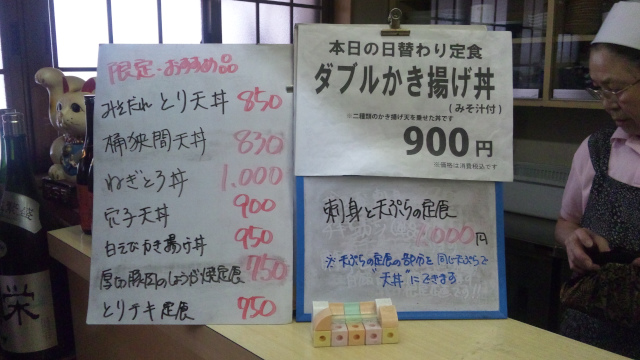 限定・おすすめ品
みそだれとり天丼 850
桶狭間天丼 830
ねぎとろ丼 1,000
穴子天丼 900
白えびかき揚げ丼 950
厚切豚肉のしょうが焼定食 750
とりテキ定食 750
本日の日替わり定食
ダブルかき揚げ丼
(みそ汁付)
※二種類のかき揚げ天を乗せた丼です
900円
※価格は消費税込です
刺身と天ぷらの定食
1,000円
※天ぷらの定食の部分を同じ天ぷらで
"天丼"にできます
栄